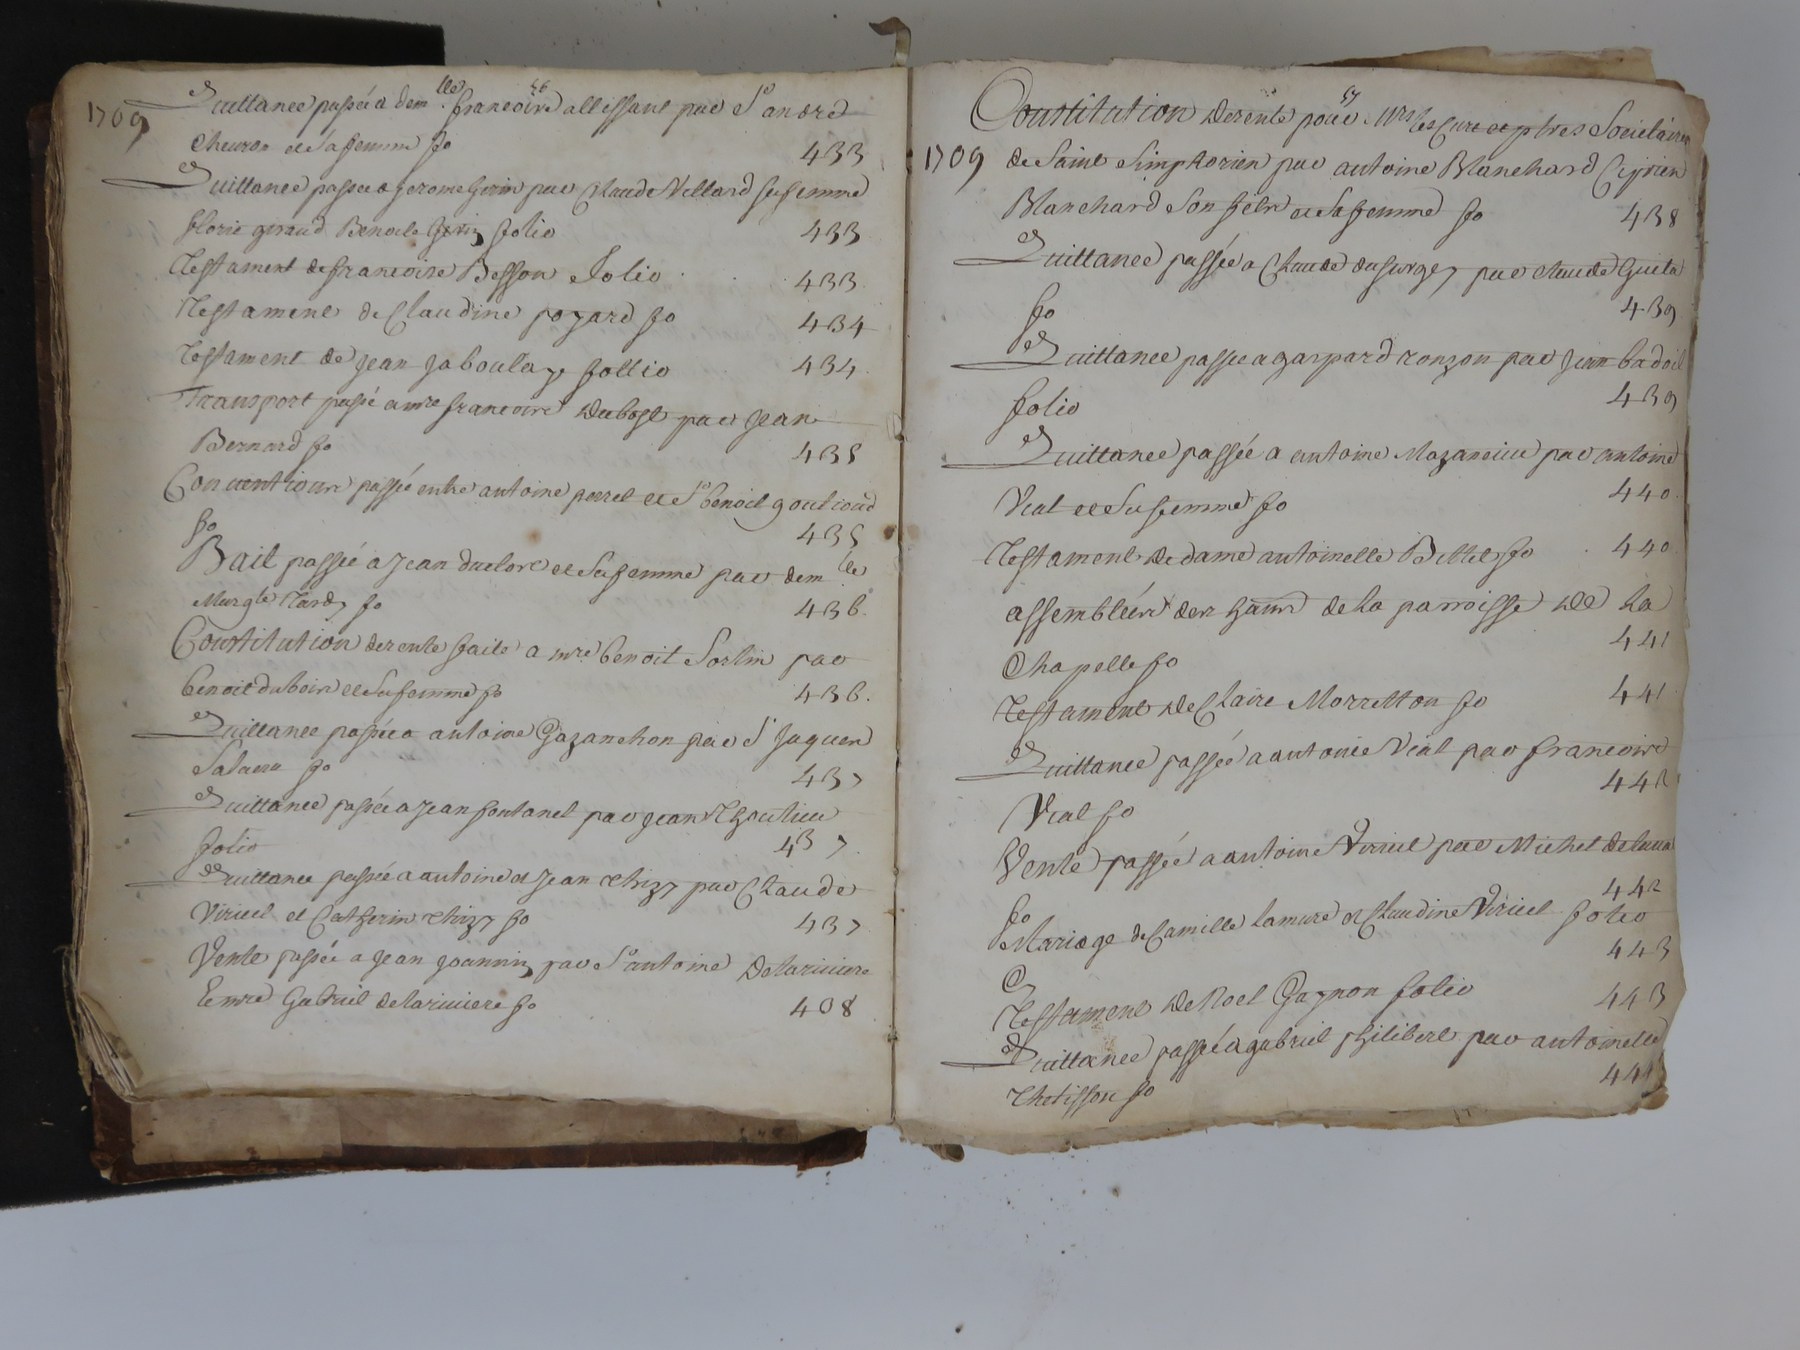 56
1709
Quittance passée a dem.lle francoise allissant par Sr andré
Cheuron et Sa femme fo 433
Quittance passée a gerome Girin par Claude Villard Sa femme
florie giraud Benoite Girin folio 433
Testament de francoise Besson Folio 433
Testament de Claudine poyard fo 434
Testament de Jean Jaboulay follio 434
Transport passé a mre francois dubost par Jean
Bernard fo 435
Conuentions passée entre antoine perret et Sr benoit goutioud
fo 435
Bail passée a Jean duclos et Sa femme par dem.lle
Margte Tardy fo 436
Constitution de rente faite a mre benoit Sorlin par
benoit dubois et Sa femme fo 436.
Quittance passée a antoine Gazanchon par Sr Jaques
fo 437
Quittance passée a Jean fontanel par Jean
folio 437.
Quittance passée a antoine et Jean thizy par Claude
Viricel et Catherin thizy fo 437
Vente passée a Jean Joannin par Sr antoine Delariuiere
et mre Gabriel delariuiere fo 408
57
Constitution de rente pour Mrs les Curé et ptres Societaires
1709 de Saint Simphorien par antoine Blanchard Ciprien
Blanchard Son filz et Sa femme fo 438
Quittance passée a Claude dusurgey par claude Guita
fo 439
Quittance passée a gaspard ronzon par Jean badoil
folio 439
Quittance passée a antoine Mazancieu par antoine
Vial et Sa femme fo 440
Testament de dame antoinette Bittel fo 440
assemblée des de la parroisse de La
Chapelle fo 441
Testament de Claire Morretton fo 441
Quittance passée a antoine Vial par francoise
Vial fo 442
Vente passée a antoine Viricel par Michel delaua
fo 442
Mariage de Camille Lamure et Claudine Viricel folio
443
Testament de Noel Gagnon folio 443
Quittance passée a gabriel philibert par antoinette
Thetisson fo 444